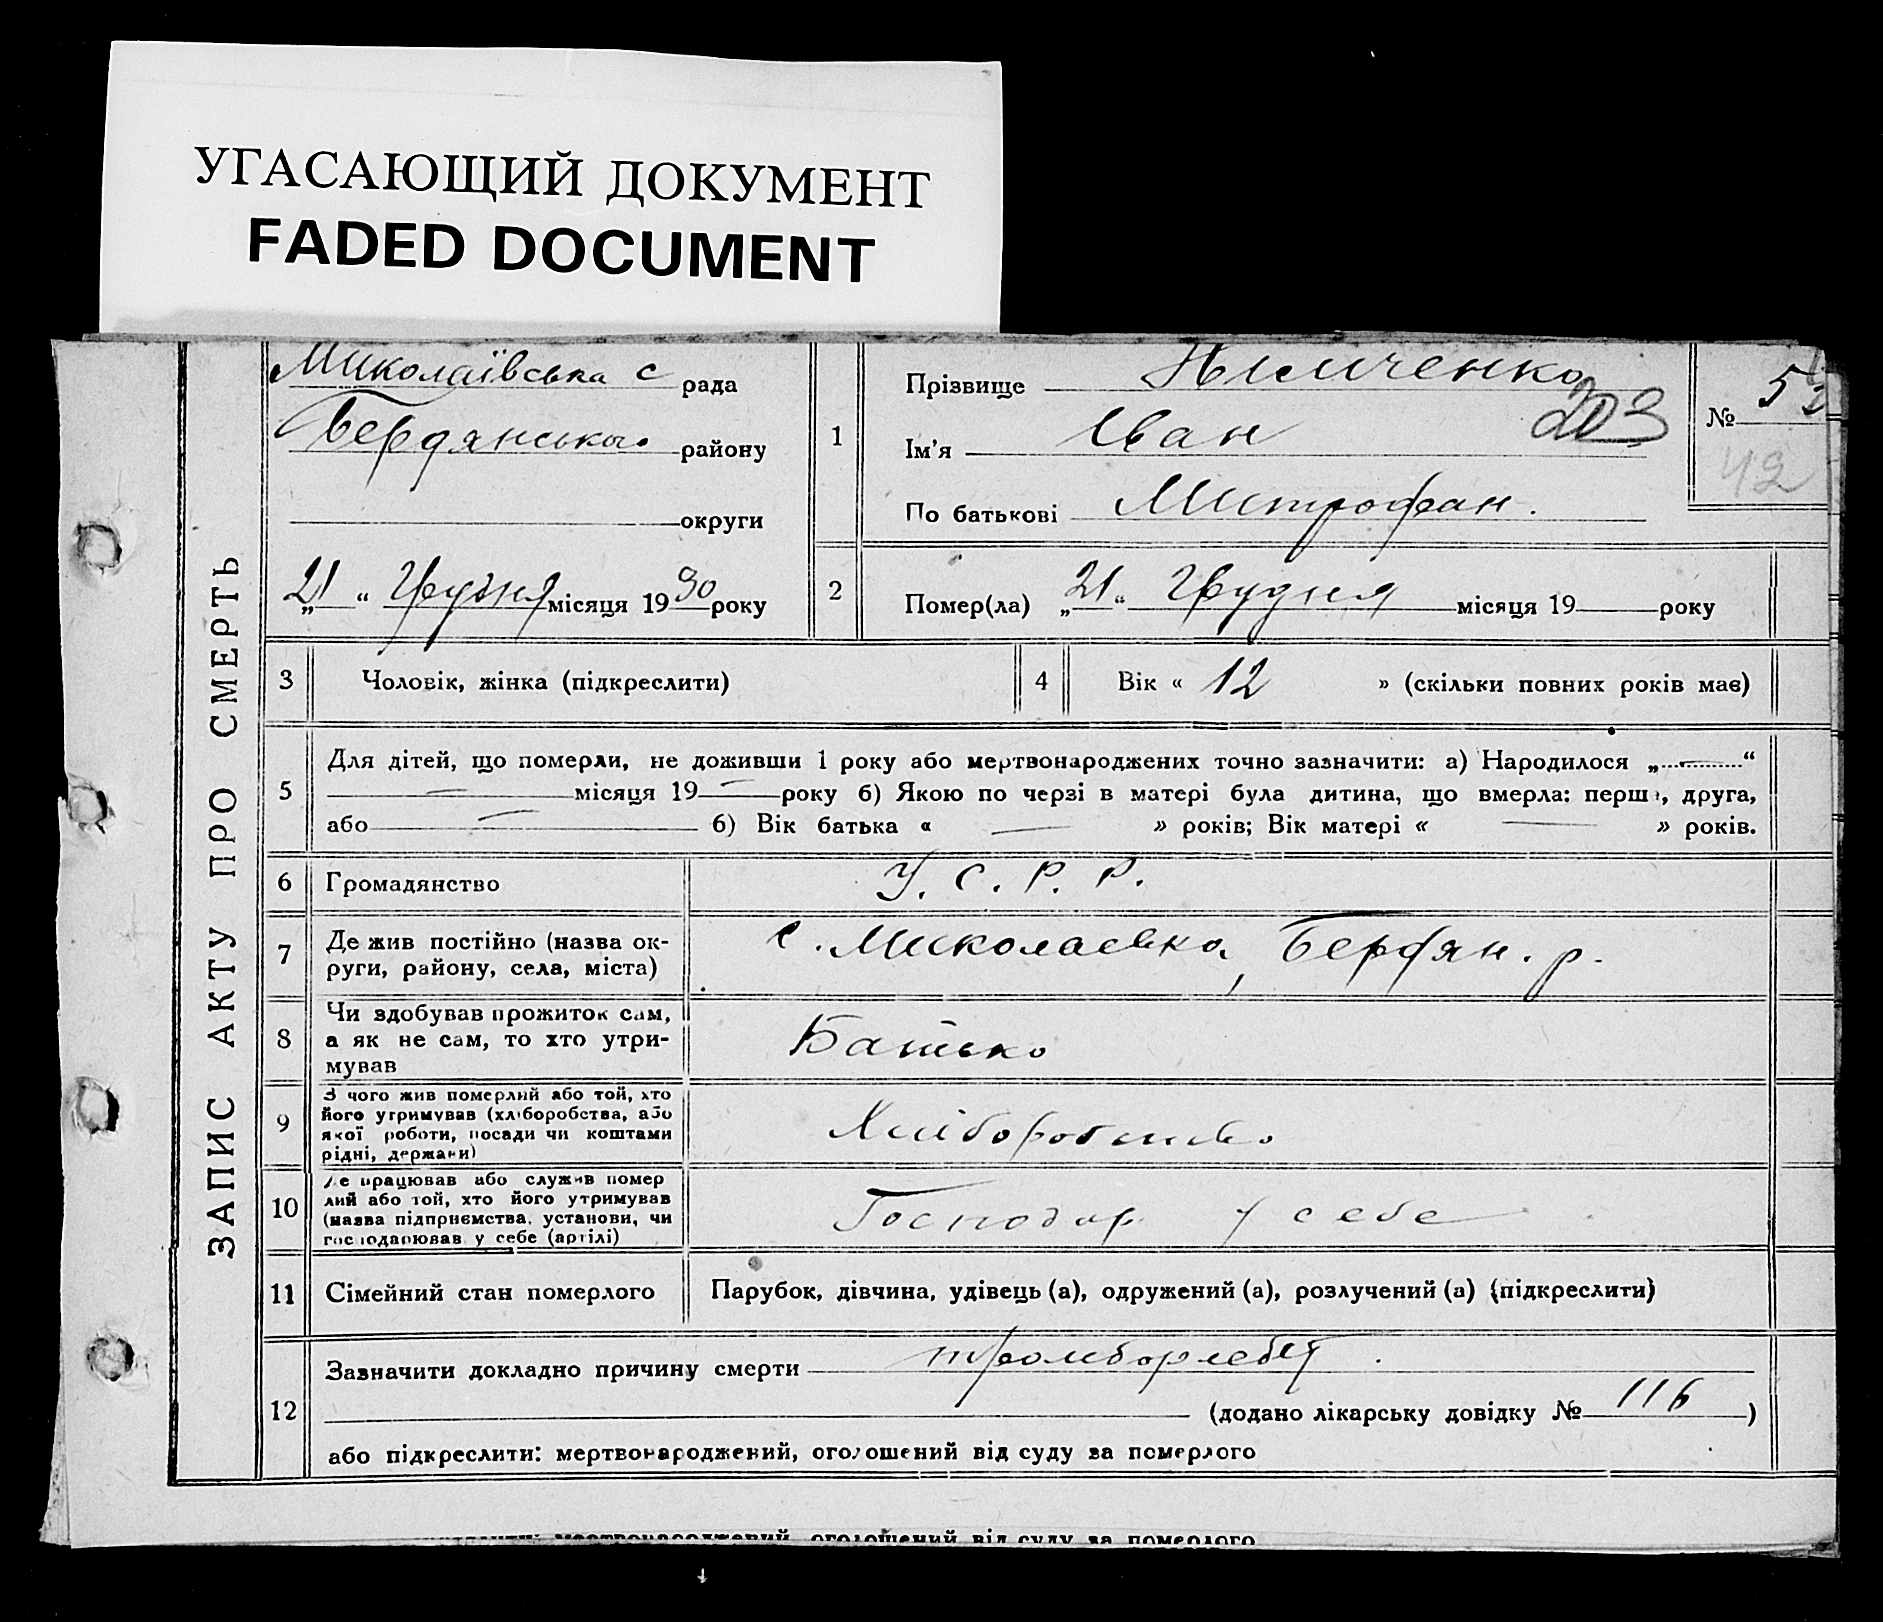 УГАСАЮЩИЙ ДОКУМЕНТ
FADED DOCUMENT
ЗАПИС АКТУ ПРО СМЕРТЬ
Миколаївська с рада
Бердянського району
округи
„21“ Грудня місяця 1930 року
1
Прізвище
Ім'я Іван
203
По батькові Митрофан.
№ 53
42
2
Помер(ла) „21“ Грудня місяця 19 року
3 Чоловік, жінка (підкреслити)
4 Вік « 12 » (скільки повних років має)
5
Для дітей, що померли, не доживши 1 року або мертвонароджених точно зазначити: а) Народилося „—“
— місяця 19— року б) Якою по черзі в матері була дитина, що вмерла: перша, друга,
або — б) Вік батька « — » років; Вік матері « — » років.
6 Громадянство У. С. Р. Р.
7 Де жив постійно (назва ок-
руги, району, села, міста)
с. Миколаевка, Бердян. р.
8 Чи здобував прожиток сам,
а як не сам, то хто утри-
мував
Батько
9 З чого жив померлий або той, хто
його утримував (хліборобства, або
якої роботи, посади чи коштами
рідні, держави)
Хліборобство
10 Де працював або служив помер
лий або той, хто його утримував
(назва підприємства, установи, чи
господарював у себе (артілі)
Господар у себе
11 Сімейний стан померлого Парубок, дівчина, удівець (а), одружений (а), розлучений (а) (підкреслити)
12
Зазначити докладно причину смерти
(додано лікарську довідку № 116)
або підкреслити: мертвонароджений, оголошений від суду за померлого
мертвонароджений, оголошений від суду за померлого